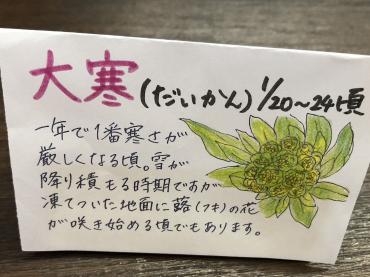 大寒(だいかん)1/20~24頃
一年で1番寒さが
厳しくなる頃。雪が
降り積もる時期ですが
凍てついた地面に蕗(フキ)の花
が咲き始める頃でもあります。